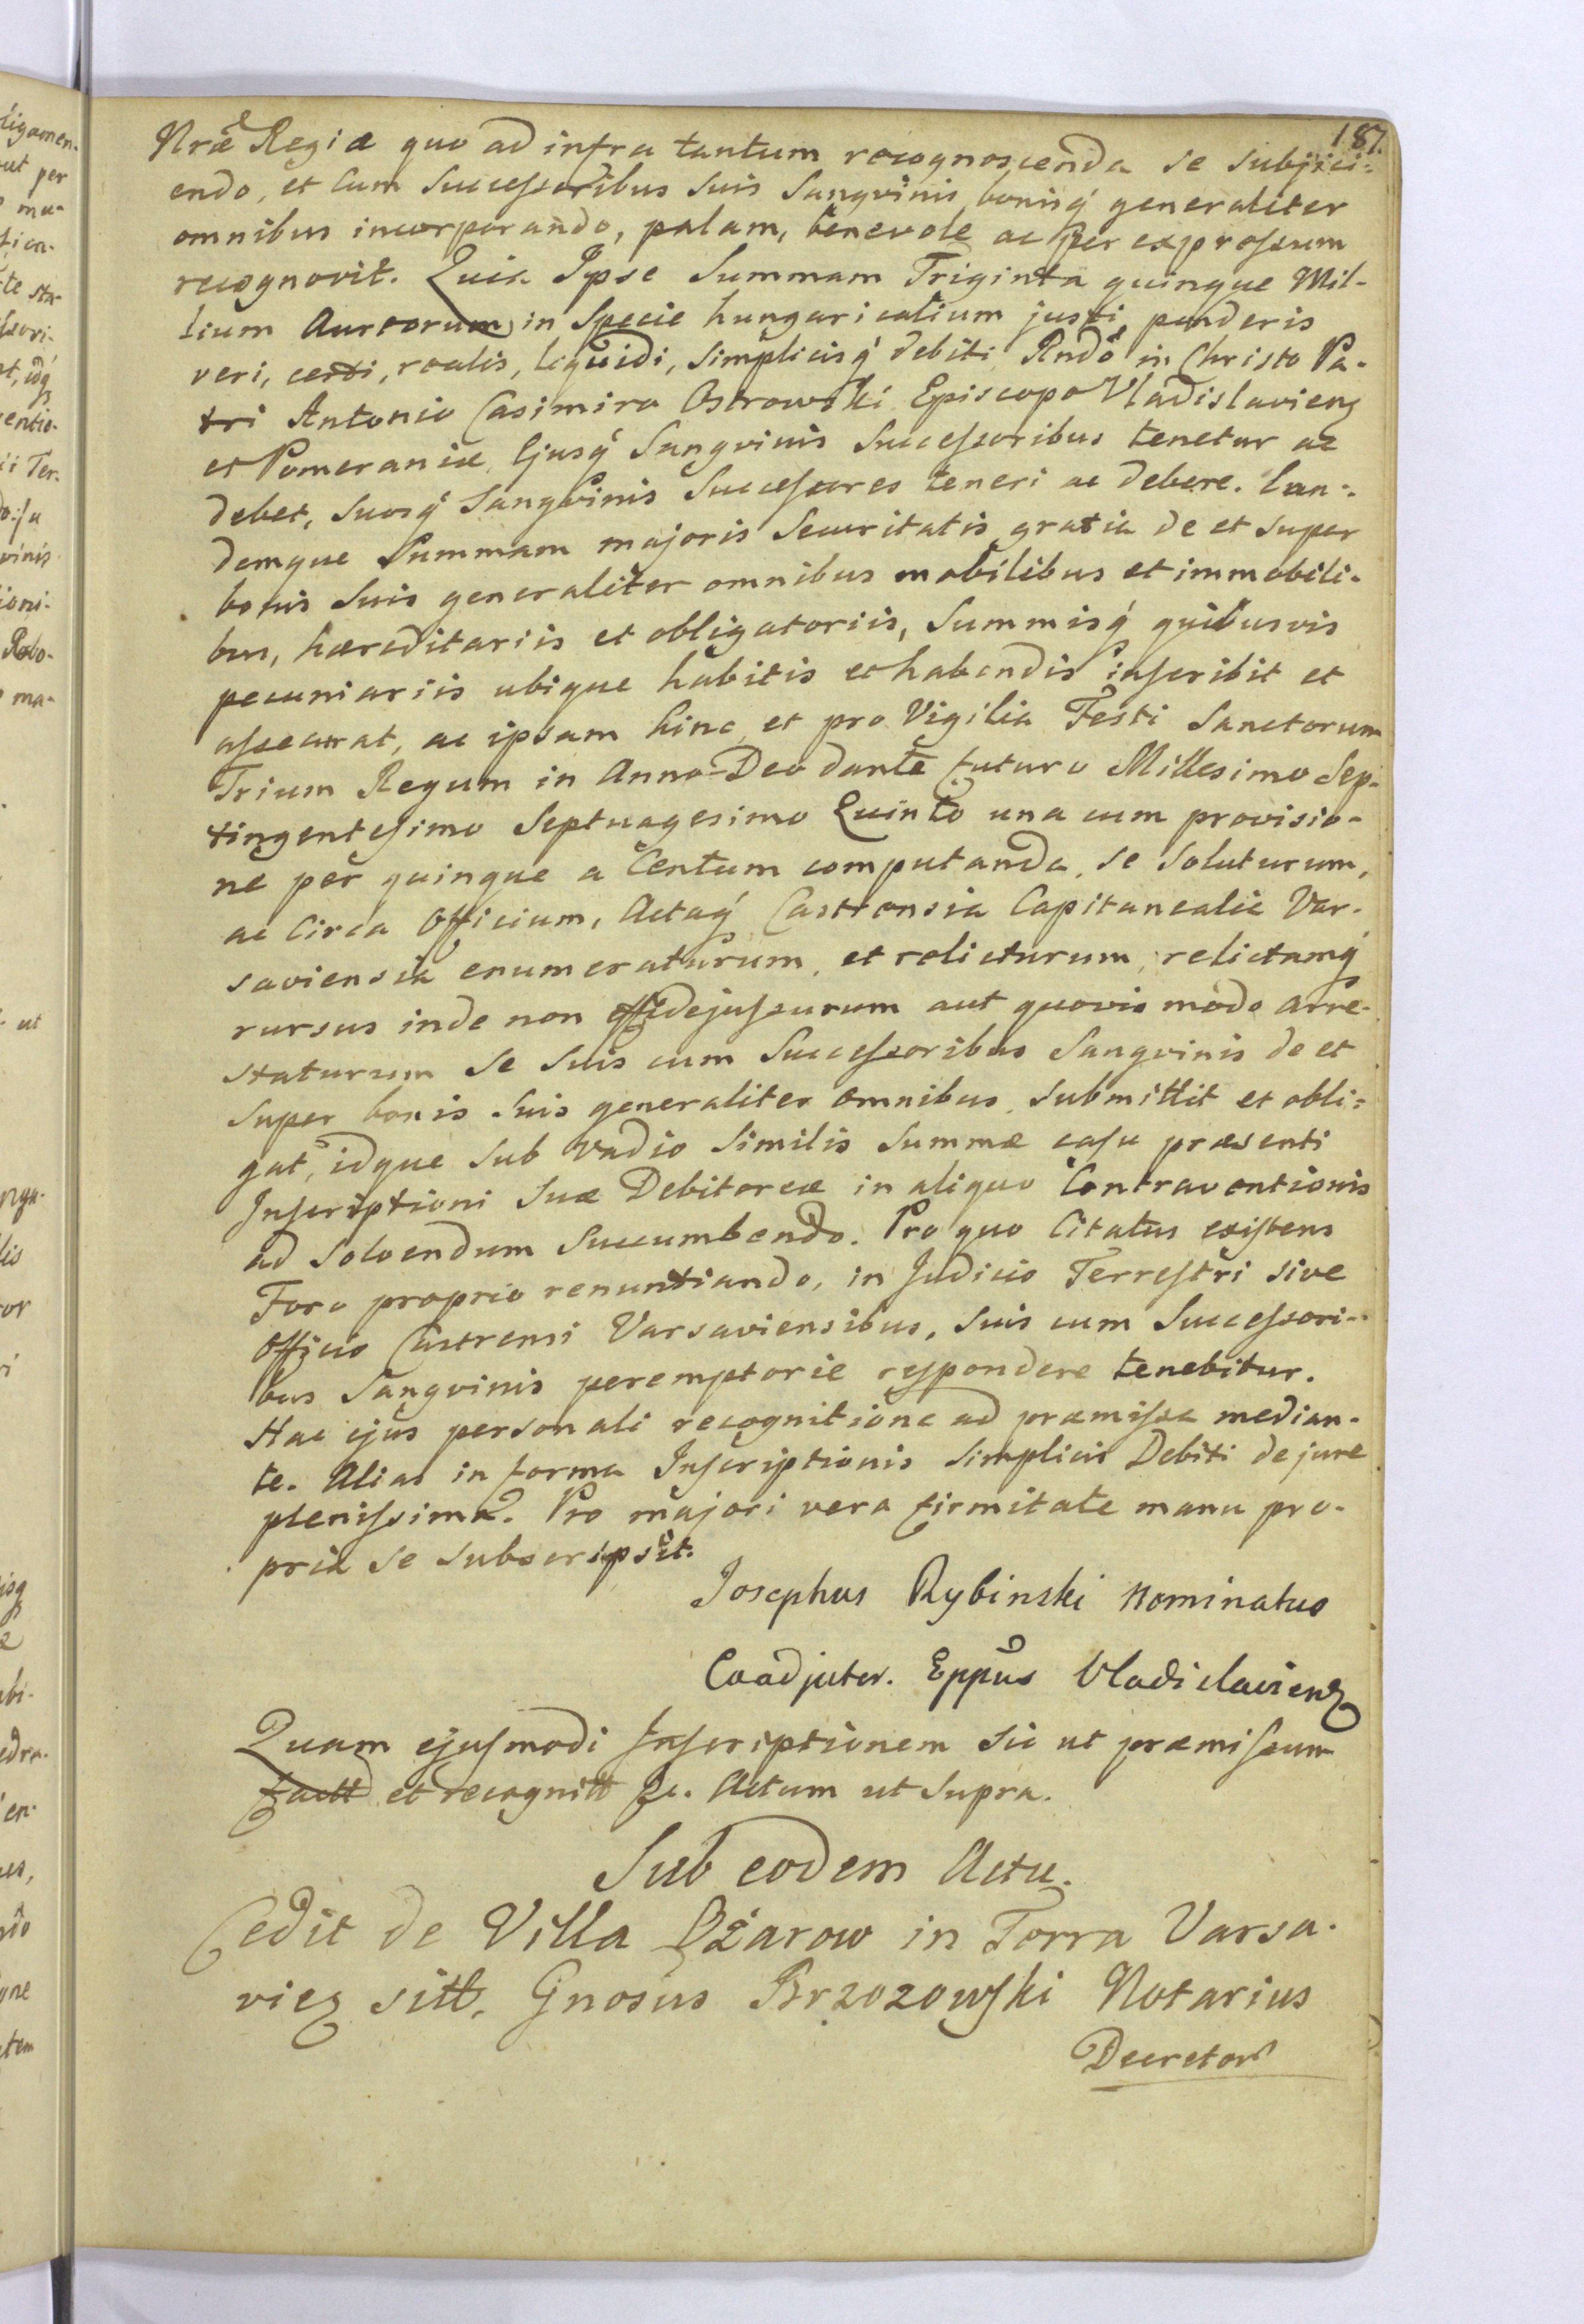 187.
Nræ Regiæ quo ad infra tantum recognoscenda se subjici:
endo, et cum Successoribus suis Sangvinis, bonisq́ generaliter
omnibus incorporando, palam, benevole ac per expressum
recognovit. Quia Ipse Summam Triginta quinque Mil-
lium Aureorum in Specie hungaricalium justi, ponderis
veri, certi, realis, liquidi, simplicisq́ debiti Rndo in Christo Pa-
tri Antonio Casimiro Ostrowski Episcopo Vladislavieng
et Pomeraniæ, Ejusq́ Sangvinis Successoribus tenetur ac
debet, suosq́ Sangvinis Successores teneri ac debere. Ean-
demque Summam majoris Securitatis gratia de et super
bonis suis generaliter omnibus mobilibus et immobili-
bus, hæreditariis et obligatoriis, Summisq́ quibusvis
pecuniariis ubique habitis et habendis inscribit et
assecurat, ac ipsam hinc, et pro Vigilia Festi Sanctorum
Trium Regum in Anno Deo dante futuro Millesimo Sep-
tingentesimo Septuagesimo Quinto una cum provisio-
ne per quinque a Centum computanda, se soluturum,
ac Circa Officium, Actaq́ Castrensia Capitanealia Var-
saviensia enumeraturum, et relicturum, relictamq́
rursus inde non effidejussurum aut quovis modo arre-
staturum se suis cum Successoribus Sangvinis de et
super bonis suis generaliter omnibus submittit et obli-
gat, idque sub vadio similis Summæ casu præsenti
Inscriptioni suæ Debitoreæ in aliquo Contraventionis
ad solvendum succumbendo. Pro quo Citatus existens
Foro proprio renuntiando, in Judicio Terrestri sive
Officio Castrensi Varsaviensibus, suis cum Successori-
bus Sangvinis peremptorie respondere tenebitur.
Hac ejus personali recognitione ad præmissa median-
te. Alias in forma Inscriptionis simplicis Debiti de jure
plenissima. Pro majori vera firmitate manu pro-
pria se subscripsit.
Josephus Rybinski Nominatus
Coadjutor. Eppus Vladislavieng
Quam ejusmodi Inscriptionem sic ut præmissum
factt et recognitt &c. Actum ut supra.
Sub eodem Actu.
Cedit de Villa Ożarow in Terra Varsa-
vieg sitt, Gnosus Brzozowski Notarius
Decretor